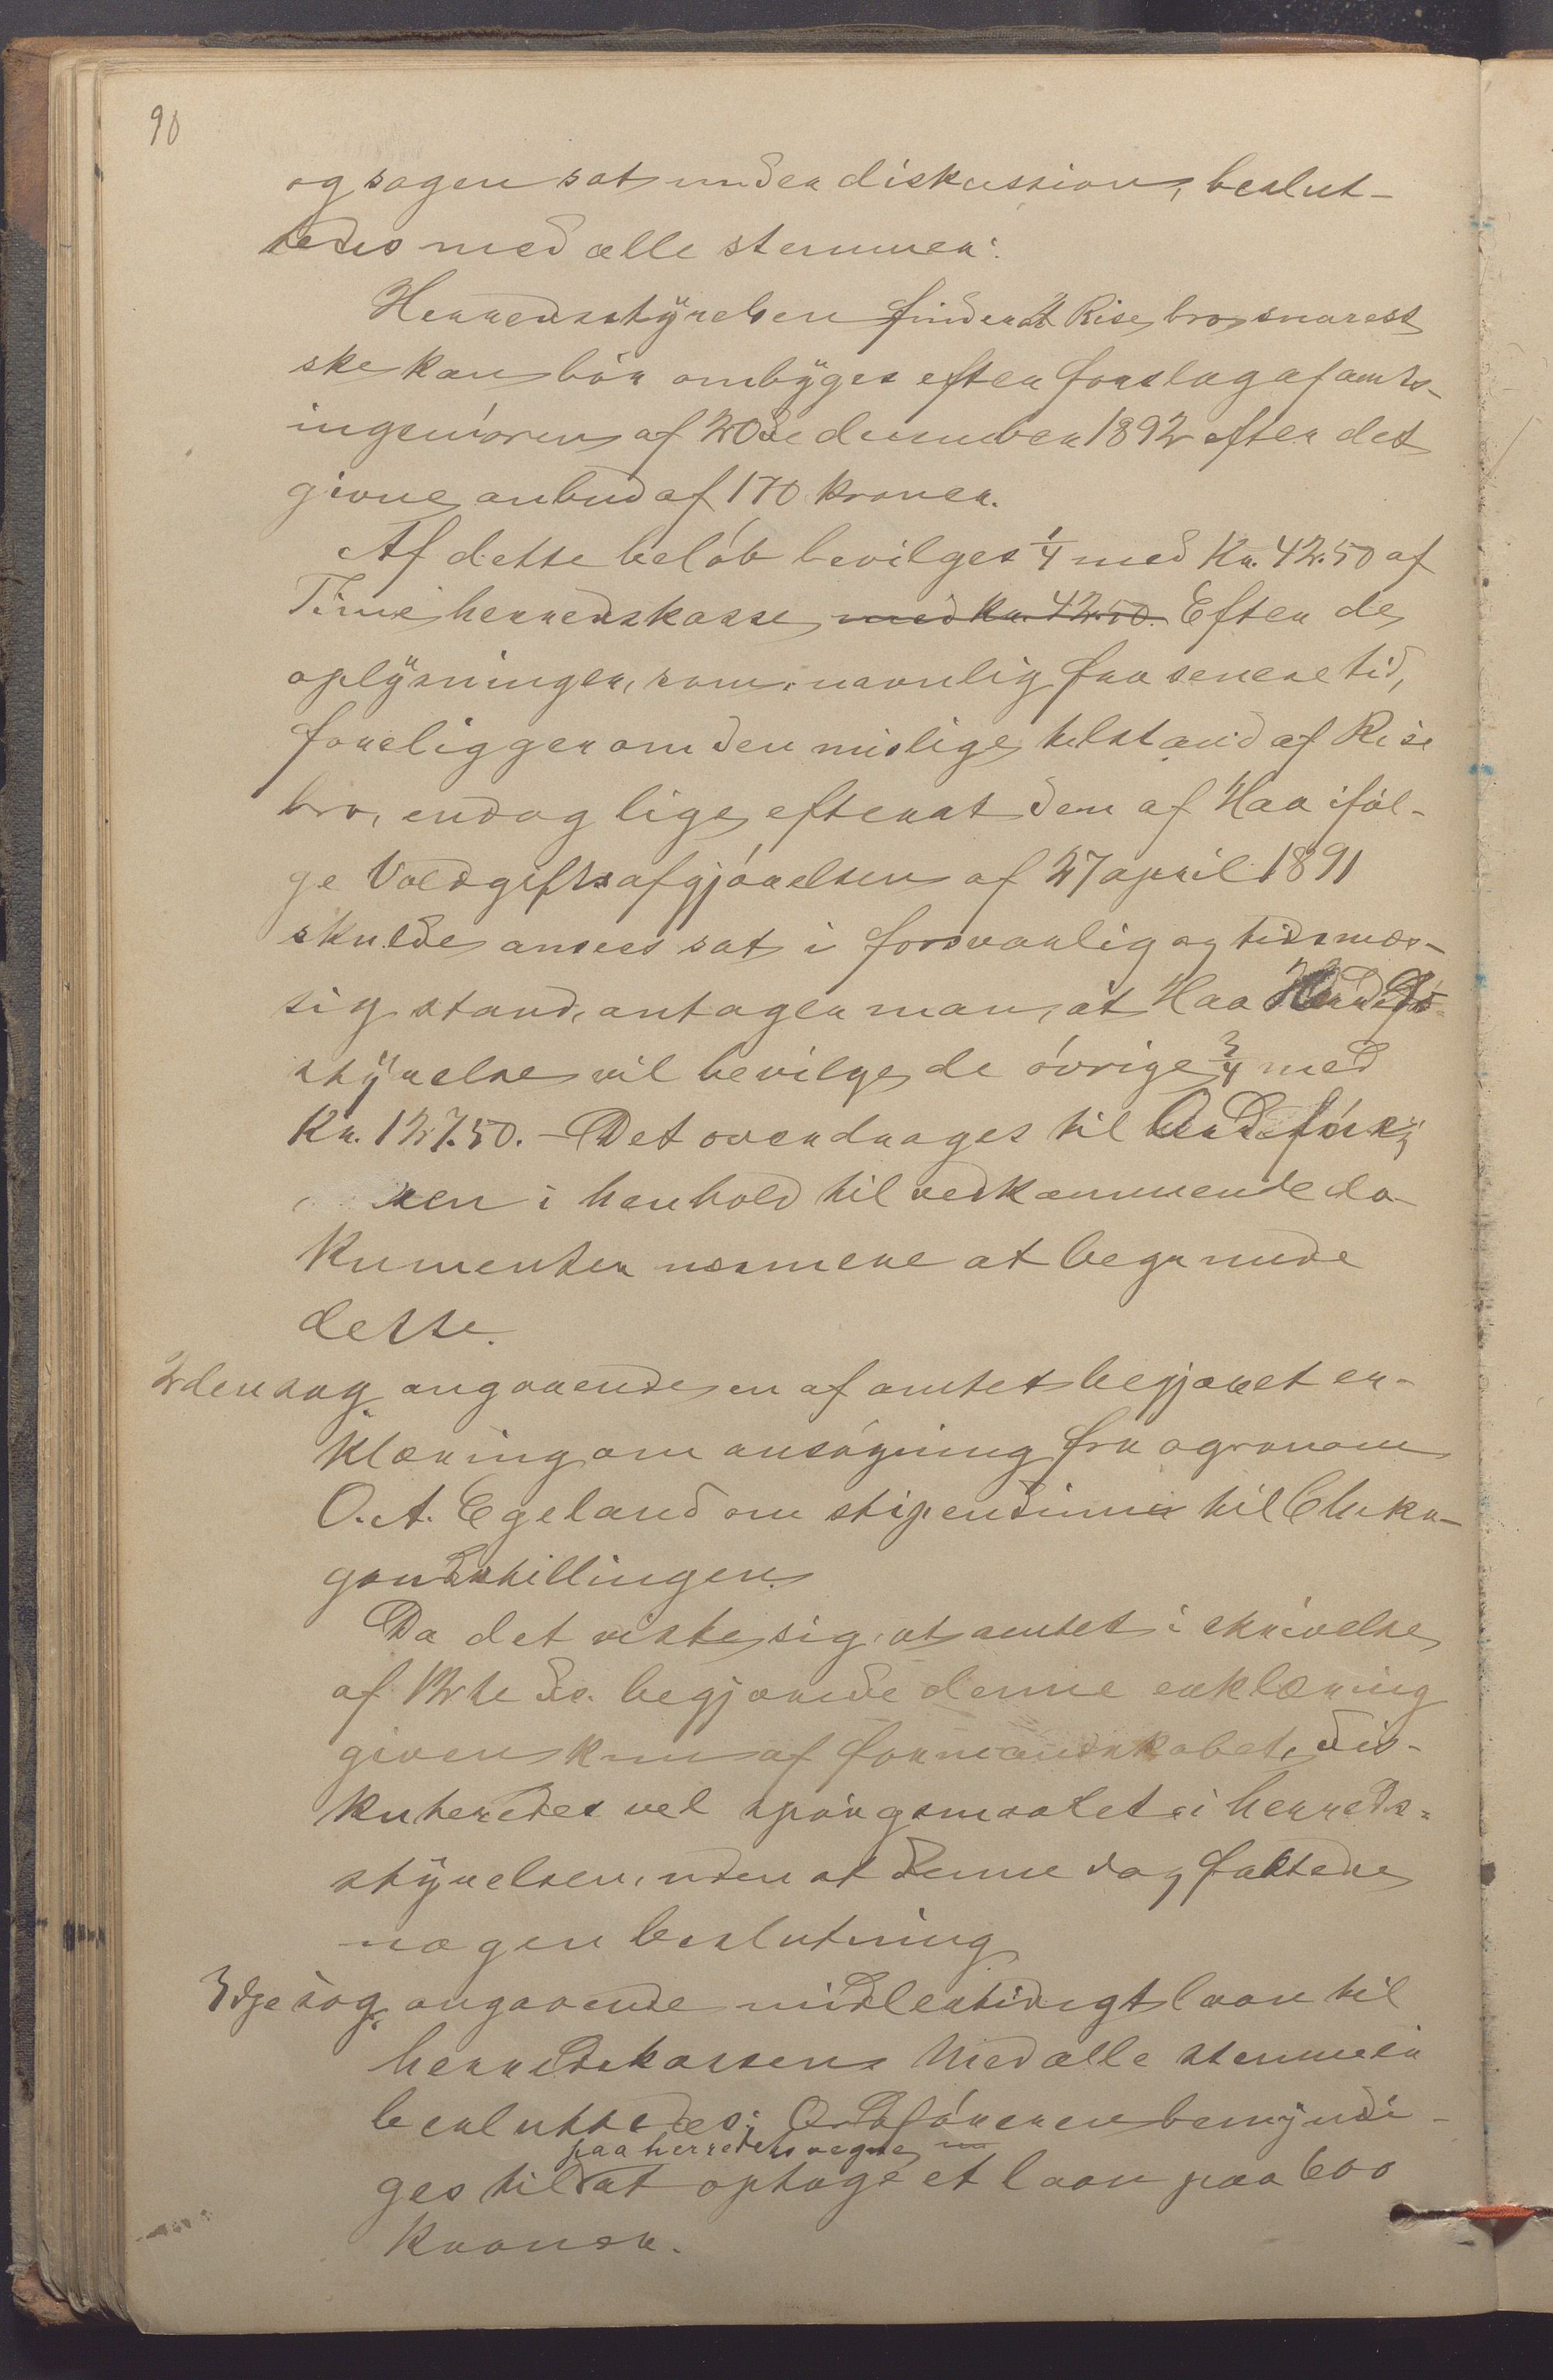 90
og sagen sat under diskussion, beslut-
tedes med alle stemmer:
Herredsstyrelsen finder at Rise bro snarest
ske kan bör ombyges efter forslag af amts-
ingeniören af 20de desember 1892 efter det
givne anbud af 170 kroner.
Af dette belöb bevilges 1/4 med Kr. 42.50 af
Time herredskasse med Kr. 42.50. Efter de
oplysninger, som, navnlig fra senere tid,
foreligger om den mislige tilstand af Rise
bro, endog lige efterat den af Haa iföl-
ge Voldgiftsafgjörelsen af 27 april 1891
skulde ansees sat i forsvarlig og tidsmæs-
sig stand, antager man, at Haa Herreds-
styrelse vil bevilge de övrige 3/4 med
Kr. 127.50. - Det overdrages til Ordför-
eren i henhold til vedkommende do-
kumenter nærmere at begrunde
dette.
2den sag, angaaende en af amtet begjæret er-
klæring om ansögning fra agronom
O. A. Egeland om stipendium til Chika-
goudstillingen.
Da det viste sig, at amtet i skrivelse
af 12te ds. begjærede denne erklæring
given kun af formandskabet, dis-
kuteredes vel spörgsmaalet i herreds-
styrelsen, uden at denne dog fattede
nogen beslutning
3dje sag, angaaende midlertidigt laan til
herredskassen. Med alle stemmer
besluttedes; Ordföreren bemyndi-
paa herredets vegne
ges til at optage et laan paa 600
kroner.